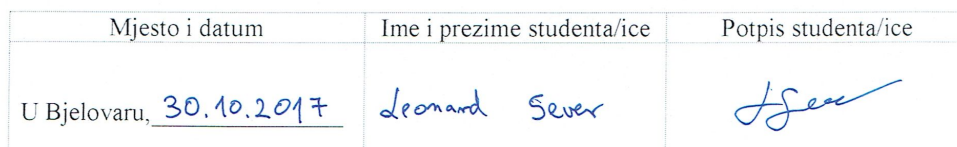 Mjesto i datum Ime i prezime studenta/ice Potpis studenta/ice
U Bjelovaru, 30.10.2017 Leonard Sever